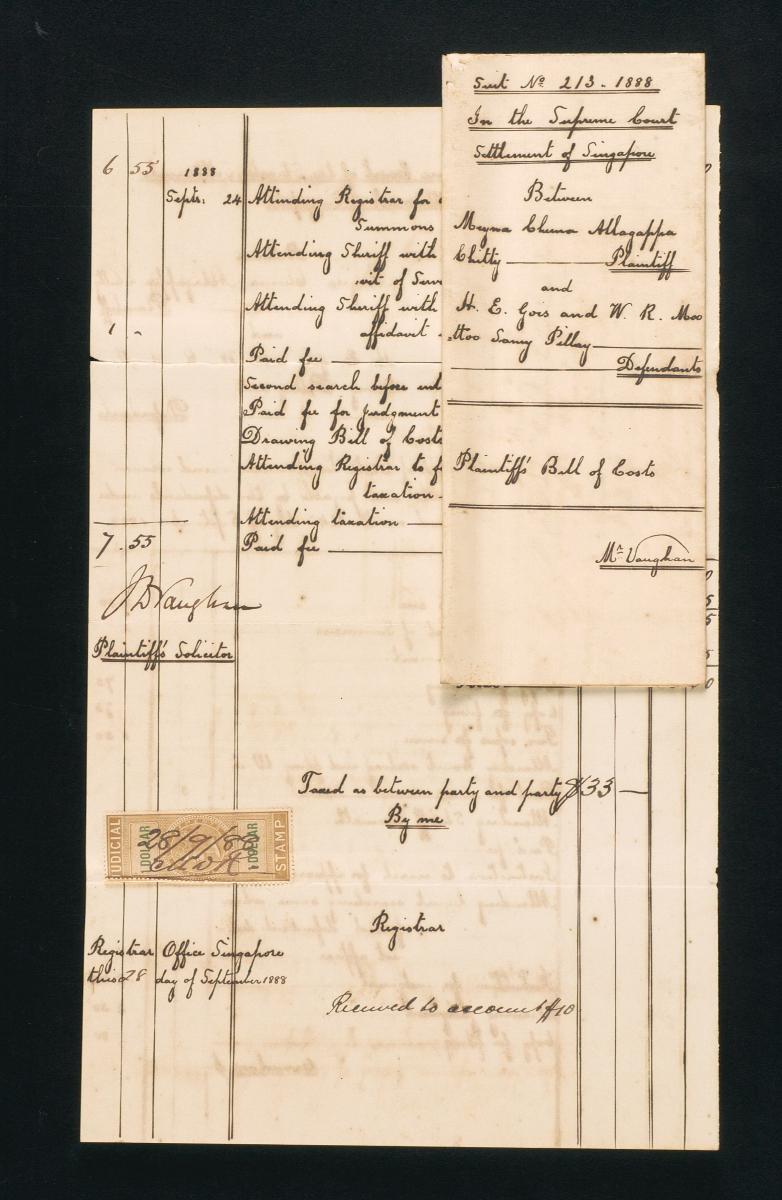 Suit No. 213. 1888
In the Supreme Court
Settlement of Singapore
Between
Meyna Chuna Allagappa
Chitty Plaintiff
and
H. E. Gois and W. R. Moo
ttoo Samy Pillay
Defendants
Plaintiff's Bill of Costs
Mr. Vaughan
6 55 1888
Septr: 24 Attending Registrar for
Summons
Attending Sheriff with
vit of Serv
Attending Sheriff with
1 - affidavit
Paid fee
Second search before ent
Paid fee for judgment
Drawing Bill of Costs
Attending Registrar to f
taxation
Attending taxation
7.55 Paid fee
J D Vaughan
Plaintiff's Solicitor
Taxed as between party and party $33
By me
JUDICIAL 1 DOLLAR 28/9/88 1 DOLLAR STAMP
Registrar
Registrar Office Singapore
this 28 day of September 1888
Received to account $10